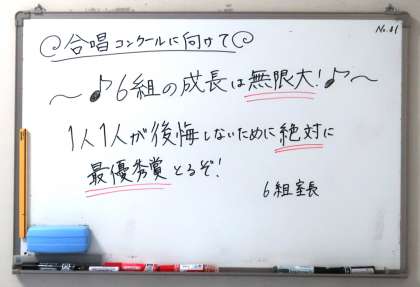 No.41
合唱コンクールに向けて
〜♪6組の成長は無限大!♪〜
1人1人が後悔しないために絶対に
最優秀賞とるぞ!
6組室長